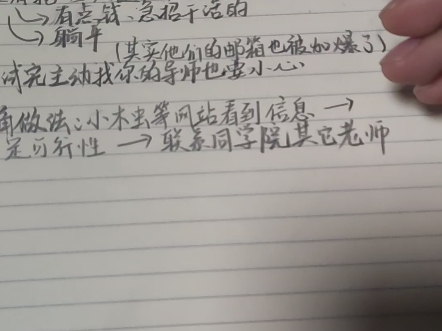 ↳有点钱、急招干活的
↳躺平
(其实他们的邮箱也被加爆了)
试完主动找你的导师也要小心
确做法:小木虫等网站看到信息→
定可行性→联系同学院其它老师